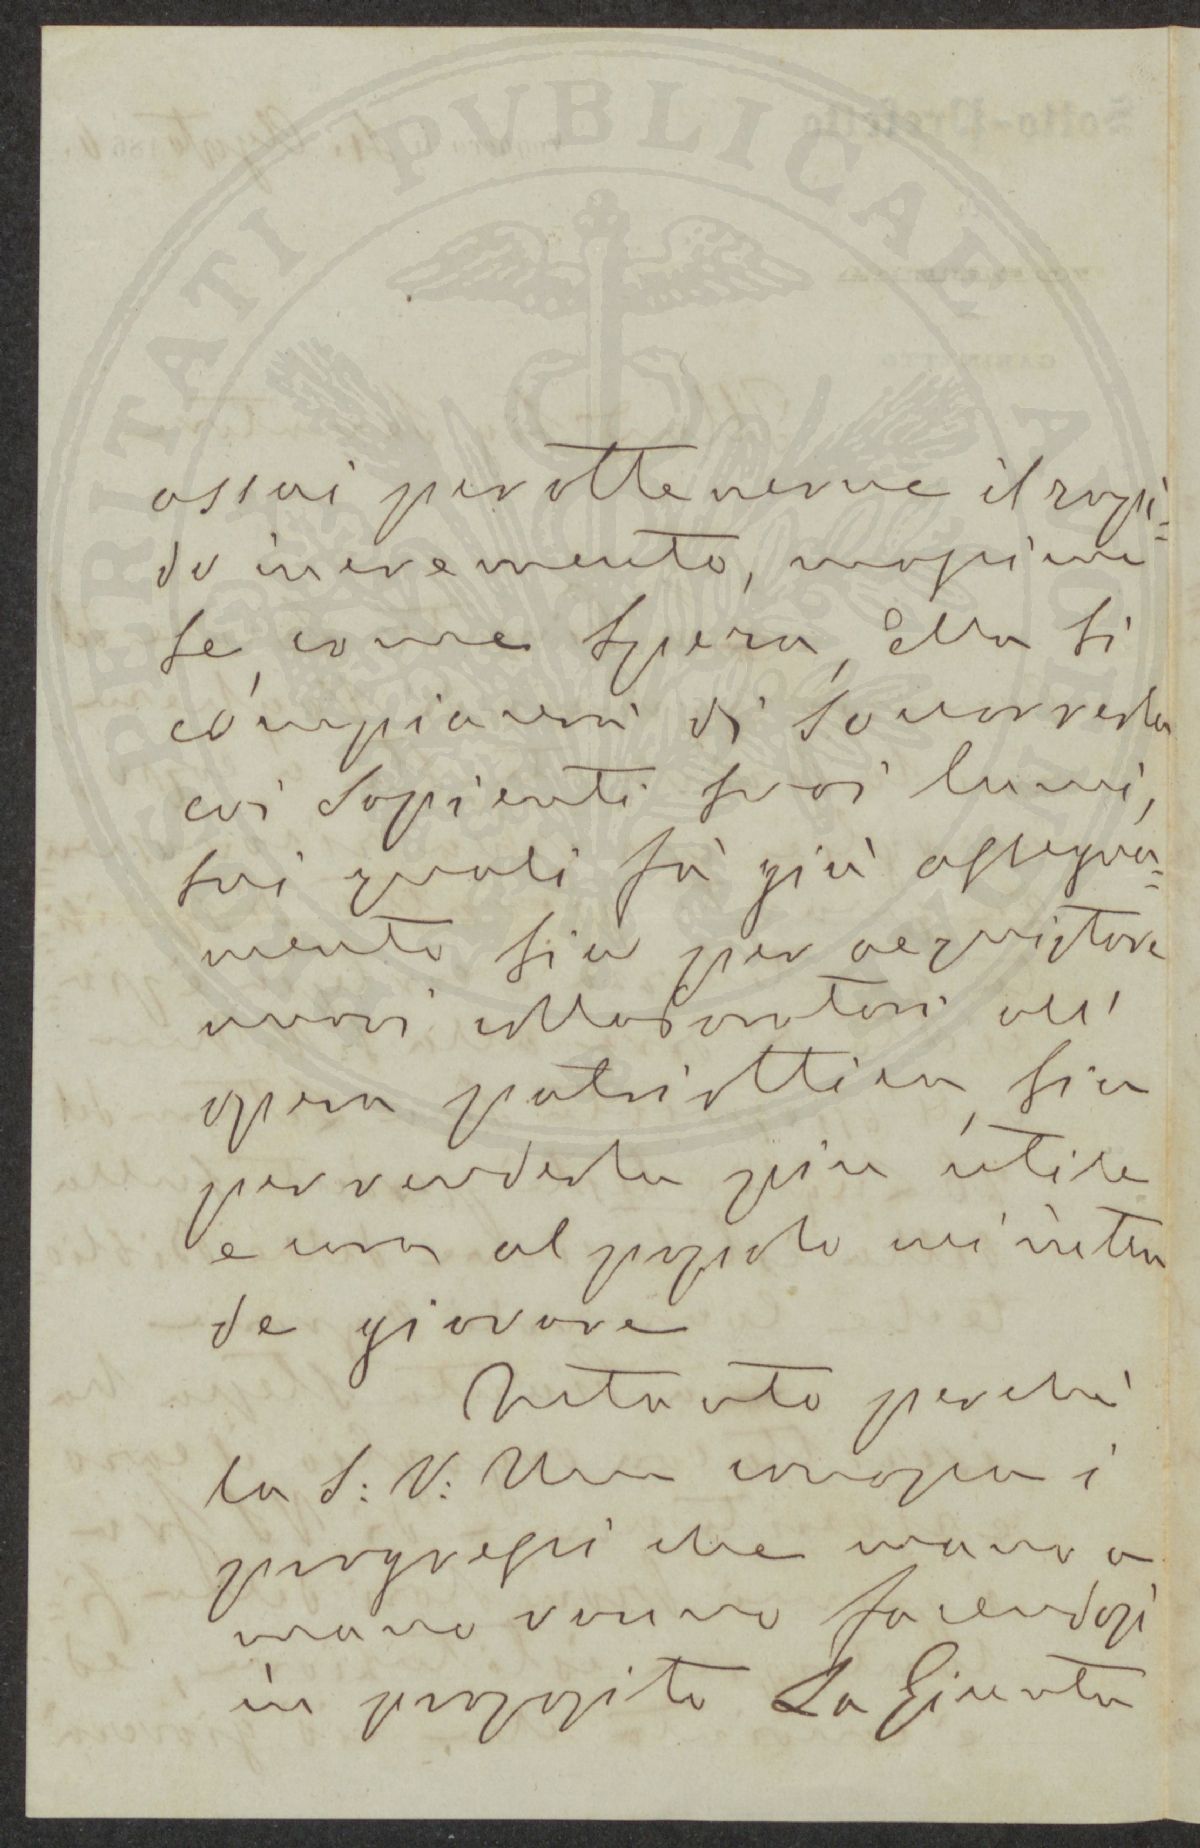 PROSPERITATI PUBLICAE AUGENDAE
assai per ottenerne il rapi=
do incremento, massime
se, come spera, Ella si
compiacerà di soccorrerla
coi sapienti suoi lumi,
sui quali fa già assegna=
mento sia per acquistare
nuovi collaboratori all'
opera patriottica, sia
per renderla più utile
e cara al popolo cui inten
de giovare
Intanto perché
la S: V: Illma conosca i
progressi che mano a
mano vanno facendosi
in proposito La Giunta